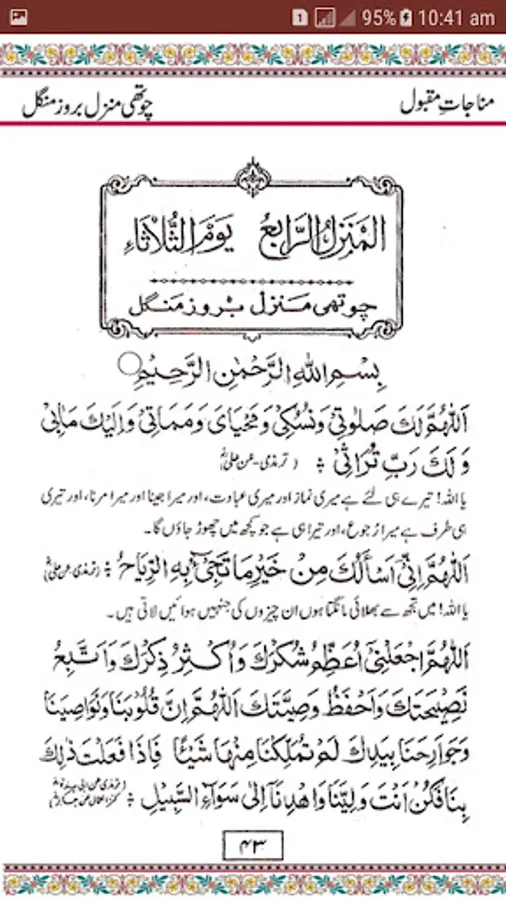 1 95% 10:41 am
مناجاتِ مقبول چوتھی منزل بروز منگل
اَلْمَنْزِلُ الرَّابِعُ يَوْمَ الثُّلَاثَاءِ
چوتھی منزل بروز منگل
بِسْمِ اللهِ الرَّحْمٰنِ الرَّحِيْمِ
اَللّٰهُمَّ لَكَ صَلٰوتِيْ وَنُسُكِيْ وَمَحْيَايَ وَمَمَاتِيْ وَاِلَيْكَ مَاٰبِيْ
وَلَكَ رَبِّ تُرَاثِيْ (ترمذی-عن علیؓ)
یا اللہ! تیرے ہی لئے ہے میری نماز اور میری عبادت، اور میرا جینا اور میرا مرنا، اور تیری
ہی طرف ہے میرا رجوع، اور تیرا ہی ہے جو کچھ میں چھوڑ جاؤں گا۔
اَللّٰهُمَّ اِنِّيْ اَسْأَلُكَ مِنْ خَيْرِ مَا تَجِيْٓءُ بِهِ الرِّيَاحُ (ترمذی عن علیؓ)
یا اللہ! میں تجھ سے بھلائی مانگتا ہوں ان چیزوں کی جنہیں ہوائیں لاتی ہیں۔
اَللّٰهُمَّ اجْعَلْنِيْ اُعَظِّمُ شُكْرَكَ وَاُكْثِرُ ذِكْرَكَ وَاَتَّبِعُ
نَصِيْحَتَكَ وَاَحْفَظُ وَصِيَّتَكَ اَللّٰهُمَّ اِنَّ قُلُوْبَنَا وَنَوَاصِيَنَا
وَجَوَارِحَنَا بِيَدِكَ لَمْ تُمَلِّكْنَا مِنْهَا شَيْئًا فَاِذَا فَعَلْتَ ذٰلِكَ
بِنَا فَكُنْ اَنْتَ وَلِيَّنَا وَاهْدِنَآ اِلٰى سَوَآءِ السَّبِيْلِ
۴۳